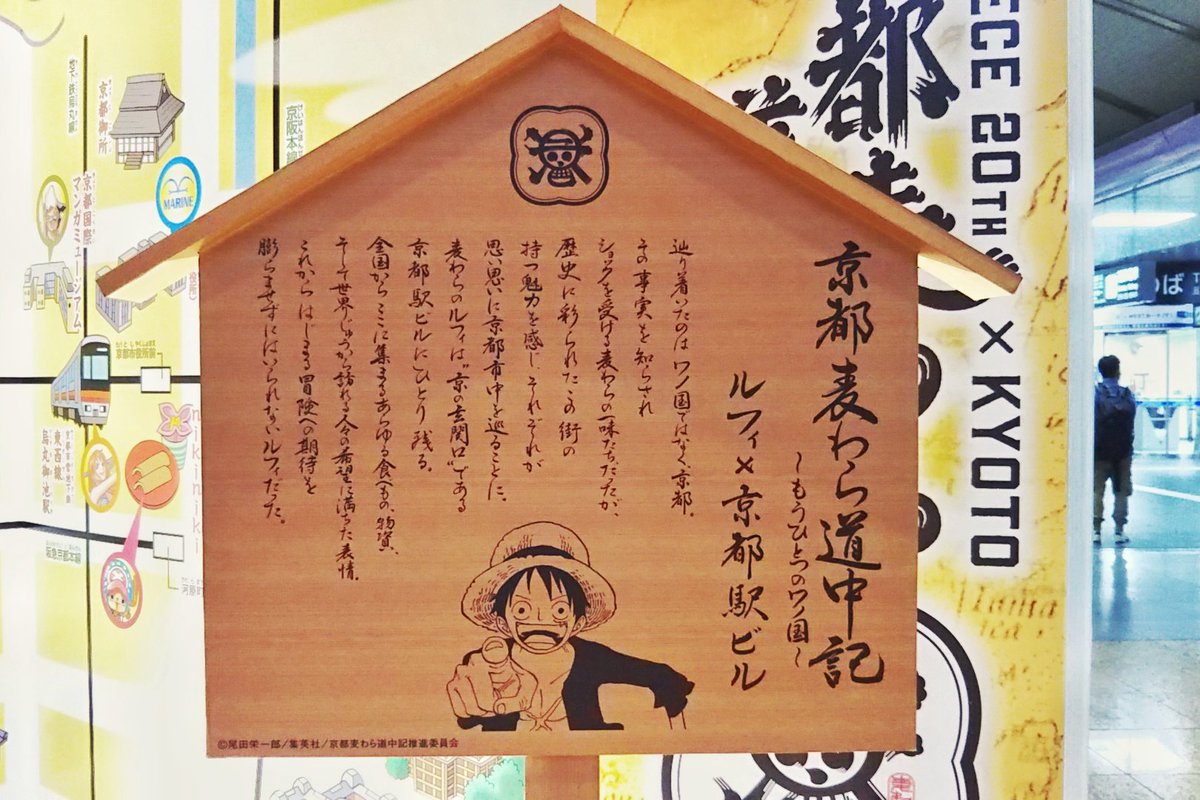 京都麦わら道中記
～もうひとつのワノ国～
ルフィ×京都駅ビル
辿り着いたのはワノ国ではなく、京都。
その事実を知らされ
ショックを受ける麦わらの一味たちだったが、
歴史に彩られたこの街の
持つ魅力を感じ、それぞれが
思い思いに京都市中を巡ることに。
麦わらのルフィは、“京の玄関口”である
京都駅ビルにひとり残る。
全国からここに集まるあらゆる食べもの、物資、
そして世界じゅうから訪れる人々の希望に満ちた表情。
これからはじまる冒険への期待を
膨らませずにはいられないルフィだった。
©尾田栄一郎／集英社／京都麦わら道中記推進委員会
ECE 20TH
× KYOTO
都
京阪本線
地下鉄烏丸線
京都御所
MARINE
京都国際
マンガミュージアム
京都市役所前
東西線
烏丸御池駅
阪急京都本線
河原町
nikiniki